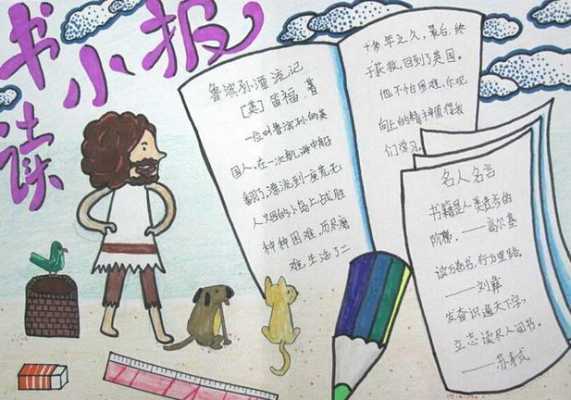 读书小报
鲁滨孙漂流记
[英]笛福 著
一位叫鲁滨孙的英
国人,在一次航海中船
翻了,漂流到一座荒无
人烟的小岛上,战胜
种种困难,历尽磨
难,生活了二
十多年之久,最后,终
于获救,回到了英国。
他不怕困难,乐观
向上的精神值得我
们学习。
名人名言
书籍是人类进步的
阶梯。——高尔基
读万卷书,行万里路。
——刘彝
发奋识遍天下字,
立志读尽人间书。
——苏轼